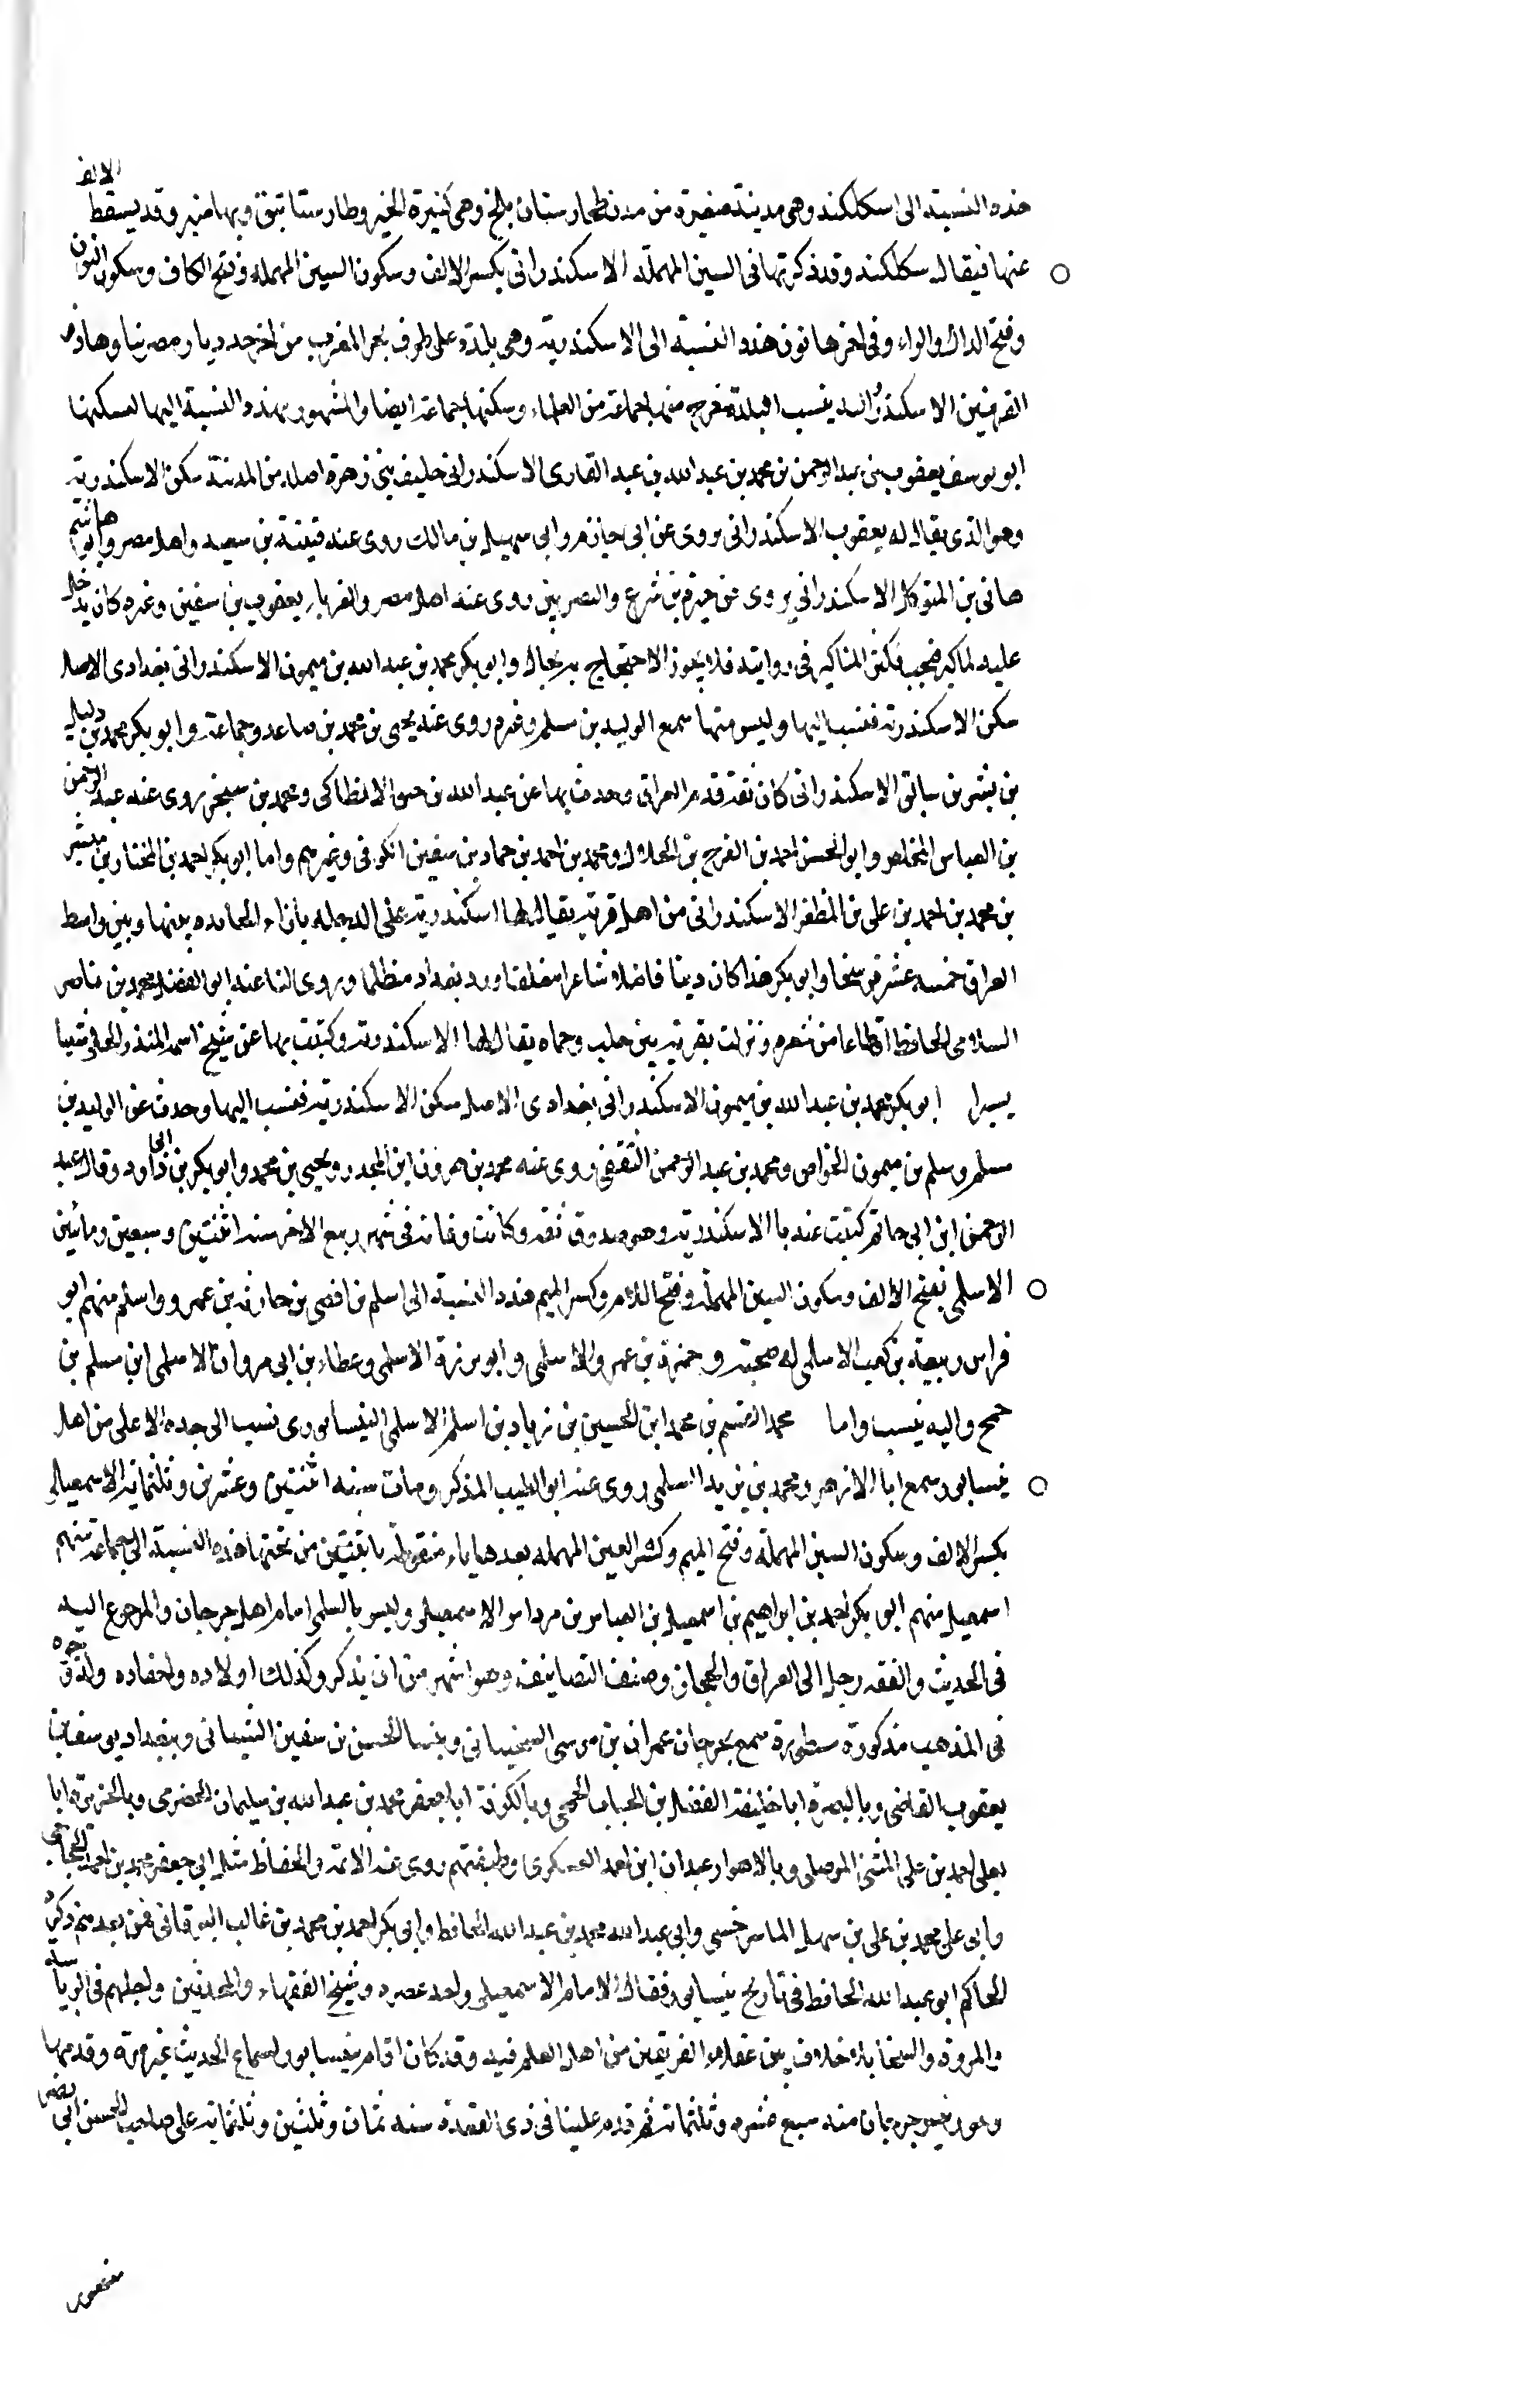 هذه النسبة الى اسكلكند وهى مدينة صغيرة من مدن طخارستان بلخ وهى كثيرة الخير وطارستاتبق وبها منبر وقد يسقط الالف
عنها فيقال سكلكند وقد ذكرتها فى السين المهملة الاسكندرانى بكسر الالف وسكون السين المهملة وفتح الكاف وسكون النون
وفتح الدال والراء وفى اخرها نون هذه النسبة الى الاسكندرية وهى بلدة على طرف بحر المغرب من اخر حد ديار مصر بناها ذو
القرنين الاسكندر واليه ينسب البلدة خرج منها جماعة من العلماء وسكنها جماعة ايضا والمشهور بهذه النسبة اليها لسكنها
ابو يوسف يعقوب بن عبد الرحمن بن محمد بن عبد الله بن عبد القارى الاسكندرانى حليف بنى زهرة اصله من المدينة سكن الاسكندرية
وهو الذى يقال له يعقوب الاسكندرانى يروى عن ابى حازم وابى سهيل بن مالك روى عنه قتيبة بن سعيد واهل مصر وابو هاشم
هانى بن المتوكل الاسكندرانى يروى عن حيوة بن شريح والبصريين روى عنه اهل مصر والغرباء يعقوب بن سفين وغيره كان يدخل
عليه لما كبر فيجيب فكثر المناكير فى روايته فلا يجوز الاحتجاج به بحال وابو بكر محمد بن عبد الله بن ميمون الاسكندرانى بغدادى الاصل
سكن الاسكندرية فنسب اليها وليس منها سمع الوليد بن مسلم وغيره روى عنه يحيى بن محمد بن صاعد وجماعة وابو بكر محمد بن دليل
بن بشر بن سابق الاسكندرانى كان ثقة قدم العراق وحدث بها عن عبد الله بن خبيق الانطاكى ومحمد بن سنجر روى عنه عبد الرحمن
بن العباس المخلص وابو الحسن احمد بن الفرج بن الحلال ومحمد بن احمد بن حماد بن سفين الكوفى وغيرهم واما ابو بكر احمد بن المختار بن مبشر
بن محمد بن احمد بن على بن المظفر الاسكندرانى من اهل قرية يقال لها اسكندرية على الدجلة بازاء الجامده بينها وبين واسط
العراق خمسه عشر فرسخا وابو بكر هذا كان دينا فاضلا شاعرا مفلقا ورد بغداد متظلما وروى لنا عنه ابو الفضل محمد بن ناصر
السلامى الحافظ اقطاعا من شعره ونزلت بقرية بين حلب وحماه يقال لها الاسكندرية وكتبت بها عن شيخ اسمه المنذر الحلبى شيئا
يسيرا ابو بكر محمد بن عبد الله بن ميمون الاسكندرانى بغدادى الاصل سكن الاسكندرية فنسب اليها وحدث عن الوليد بن
مسلم وسلم بن ميمون الخواص ومحمد بن عبد الرحمن الثقفى روى عنه محمد بن هرون ابن المجدر ويحيى بن محمد وابو بكر بن ابى داود وقال عبد
الرحمن ابن ابى حاتم كتبت عنه باالاسكندرية وهو صدوق ثقة وكانت وفاته فى شهر ربيع الاخر سنة اثنتين وسبعين ومائتين
الاسلمى بفتح الالف وسكون السين المهملة وفتح اللام وكسر الميم هذه النسبة الى اسلم بن افصى بن حارثة بن عمرو واسلم منهم ابو
فراس ربيعة بن كعب الاسلمى له صحبة وحمزة بن عمرو الاسلمى وابو برزة الاسلمى وعطاء بن ابى مروان الاسلمى ابن مسلم بن
جمح واليه ينسب واما محمد القسم بن محمد ابن الحسين بن زياد بن اسلم الاسلمى النيسابورى نسب الى جده الاعلى من اهل
نيسابور سمع ابا الازهر ومحمد بن يزيد السلمى روى عنه ابو الطيب المذكر ومات سنه اثنتين وعشرين وثلثمائه الاسمعيلى
بكسر الالف وسكون السين المهملة وفتح الميم وكسر العين المهمله بعدها ياء منقوطة باثنتين من تحتها هذه النسبة الى جماعة منهم
اسمعيل منهم ابو بكر احمد بن ابراهيم بن اسمعيل بن العباس بن مرداس الاسمعيلى وليس بالسلمى امام اهل جرجان والمرجوع اليه
فى الحديث والفقه رحل الى العراق والحجاز وصنف التصانيف وهو اشهر من ان يذكر وكذلك اولاده واحفاده
فى المذهب مذكورة مسطورة سمع بجرجان عمران بن موسى السختيانى وبنسا الحسن بن سفين الشيبانى وببغداد يوسف بن
يعقوب القاضى وبالبصرة ابا خليفة الفضل بن الحباب الجمحى وبالكوفة ابا جعفر محمد بن عبد الله بن سليمان الحضرمى وبالجزيرة ابا
يعلى احمد بن على المثنى الموصلى وبالاهواز عبدان ابن احمد العسكرى وطبقتهم روى عنه الائمة والحفاظ مثل ابى جعفر محمد بن احمد
وابى على محمد بن على بن سهل الماسرخسى وابى عبد الله محمد بن عبد الله الحافظ وابى بكر احمد بن محمد بن غالب البرقانى فمن بعدهم ذكره
الحاكم ابو عبد الله الحافظ فى تاريخ نيسابور فقال الامام الاسمعيلى واحد عصره وشيخ الفقهاء والمحدثين واجلهم فى الرياسه
والمروه والسخا بلا خلاف بين عقلاء الفريقين من اهل العلم فيه وقد كان اقام بنيسابور لسماع الحديث غير مرة وقدمها
وهو رئيس جرجان سنه سبع عشره وثلثمائة ثم قدم علينا فى ذى القعدة سنه ثمان وثلثين وثلثمائه على صاحب الحسن ابى نصر
منصور